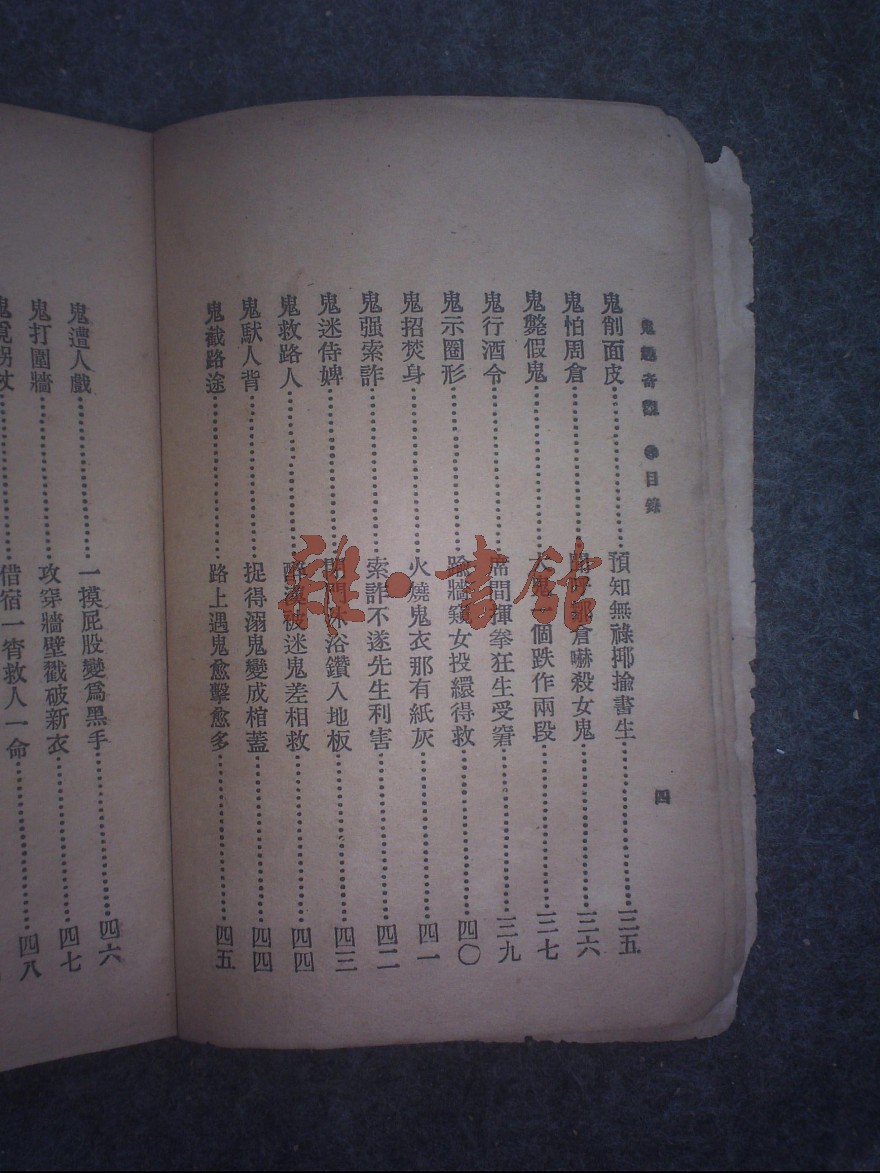 鬼 奇觀 目錄 四
鬼削面皮……預知無祿揶揄書生……三五
鬼怕周倉……倉嚇殺女鬼……三六
鬼斃假鬼……鬼一個跌作兩段……三七
鬼行酒令……席間揮拳狂生受窘……三九
鬼示圈形……踰牆窺女投繯得救……四〇
鬼招焚身……火燒鬼衣那有紙灰……四一
鬼强索詐……索詐不遂先生利害……四二
鬼迷侍婢……沐浴鑽入地板……四三
鬼救路人……醉漢被迷鬼差相救……四四
鬼馱人背……捉得溺鬼變成棺蓋……四四
鬼截路途……路上遇鬼愈擊愈多……四五
鬼遭人戲……一摸屁股變爲黑手……四六
鬼打圍牆……攻穿牆壁戳破新衣……四七
鬼竟拐杖……借宿一宵救人一命……四八
雜·書館